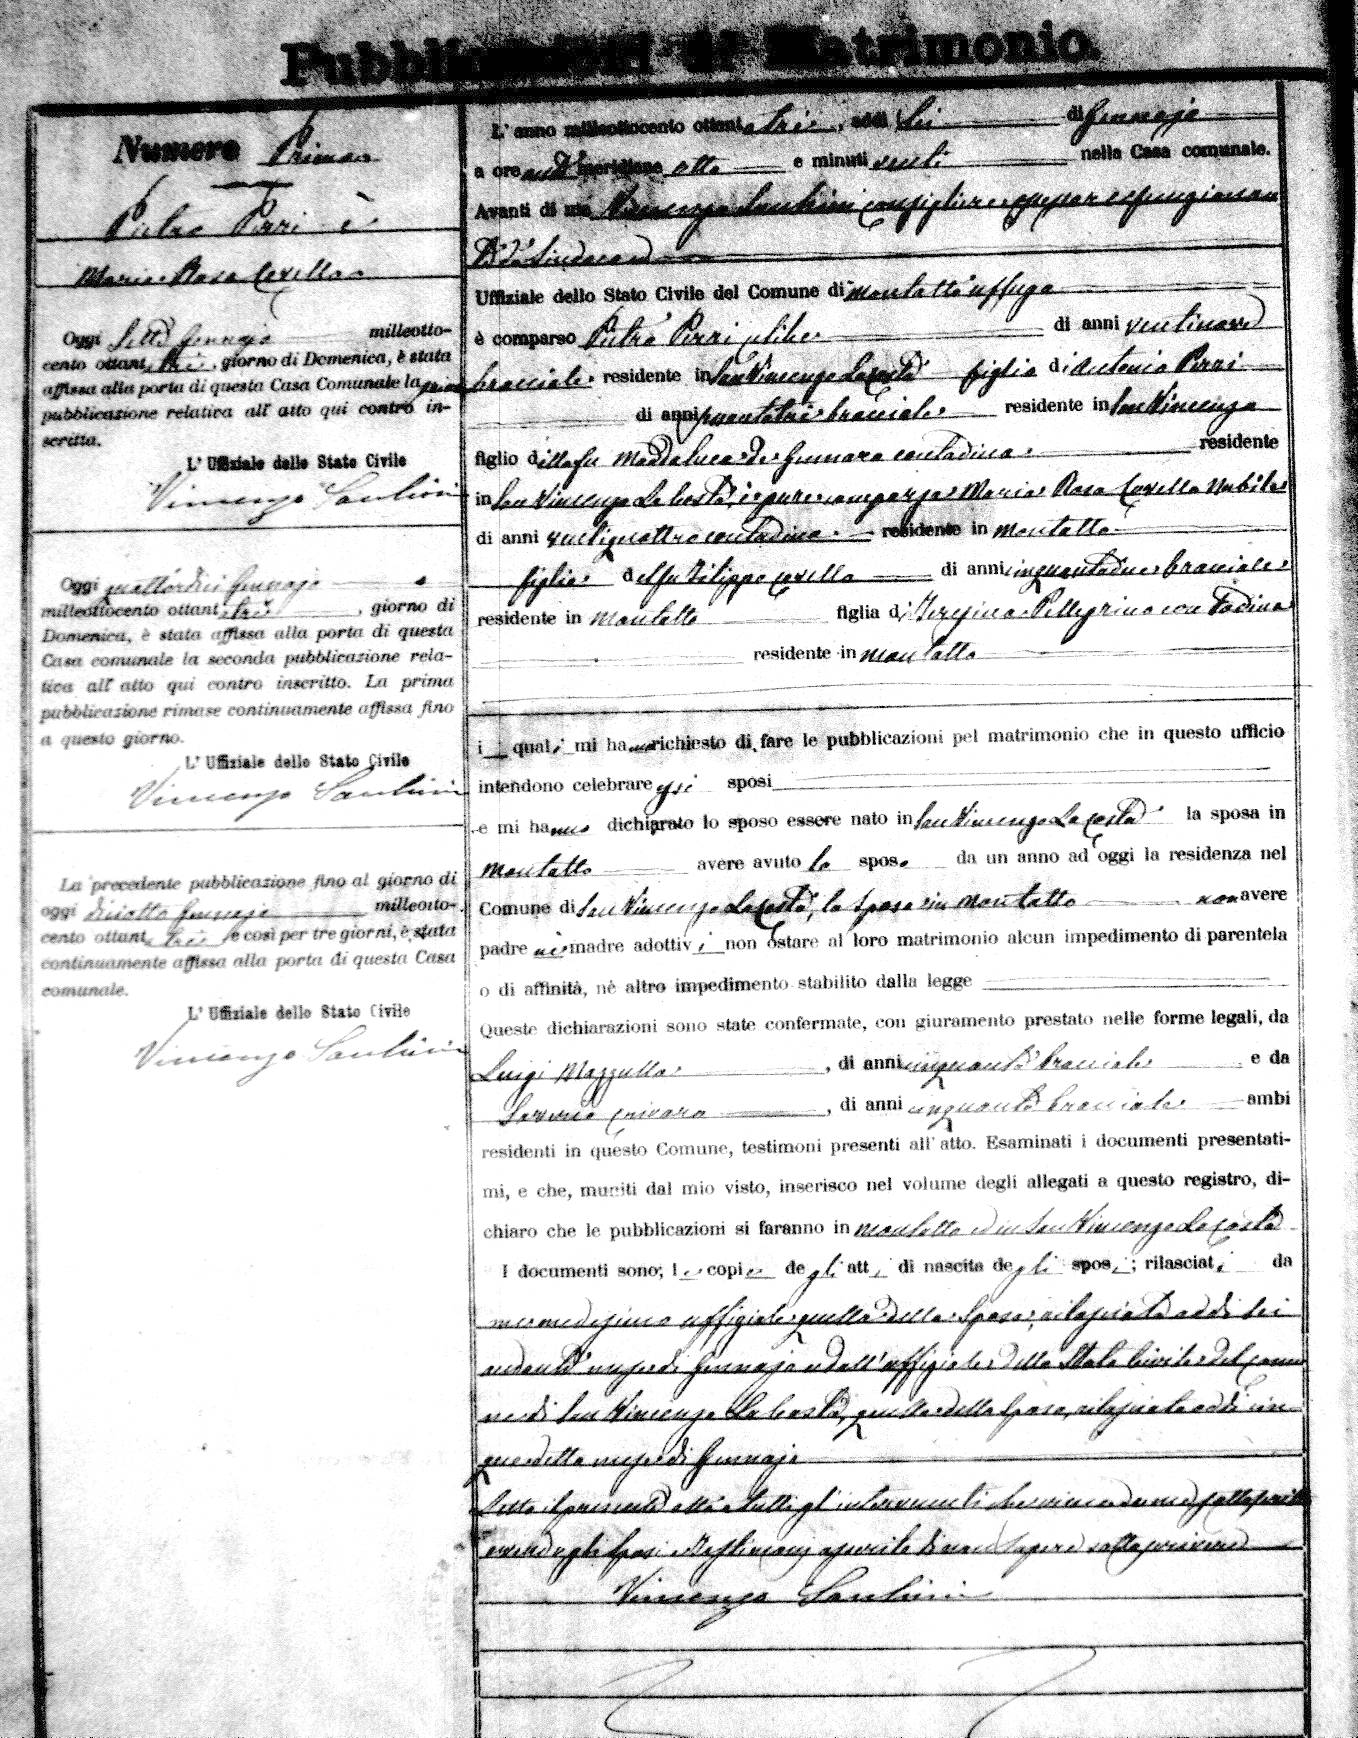 Pubblicazioni di Matrimonio.
Numero Primo
Pietro Perri è
Maria Rosa Covello
Oggi Sette Gennajo milleotto-
cento ottanta tre, giorno di Domenica, è stata
affissa alla porta di questa Casa Comunale la prima
pubblicazione relativa all' atto qui contro in-
scritta.
L' Uffiziale dello Stato Civile
Vincenzo
Oggi quattordici Gennajo
milleottocento ottanta tre, giorno di
Domenica, è stata affissa alla porta di questa
Casa comunale la seconda pubblicazione rela-
tiva all' atto qui contro inscritto. La prima
pubblicazione rimase continuamente affissa fino
a questo giorno.
L' Uffiziale dello Stato Civile
Vincenzo
La precedente pubblicazione fino al giorno di
oggi diciotto Gennajo milleotto-
cento ottanta tre, e così per tre giorni, è stata
continuamente affissa alla porta di questa Casa
comunale.
L' Uffiziale dello Stato Civile
Vincenzo
L' anno milleottocento ottanta tre, addì Sei di Gennajo
a ore anti meridiane otto e minuti venti nella Casa comunale.
Avanti di me Vincenzo consigliere
Sindaco
Uffiziale dello Stato Civile del Comune di Montalto Uffugo
è comparso Pietro Perri celibe di anni ventinove
bracciale residente in San Vincenzo La Costa figlio di Antonio Perri
di anni bracciale residente in San Vincenzo
figlio della fu Maddalena de Gennaro contadina residente
in San Vincenzo La Costa, è pure comparsa Maria Rosa Covello nubile
di anni ventiquattro contadina residente in Montalto
figlia del fu Filippo Covello di anni cinquantadue bracciale
residente in Montalto figlia di Teresina Pellegrino contadina
residente in Montalto
i quali mi hanno richiesto di fare le pubblicazioni pel matrimonio che in questo ufficio
intendono celebrare essi sposi
e mi hanno dichiarato lo sposo essere nato in San Vincenzo La Costa la sposa in
Montalto avere avuto lo sposo da un anno ad oggi la residenza nel
Comune di San Vincenzo La Costa, la sposa in Montalto non avere
padre nè madre adottivi non ostare al loro matrimonio alcun impedimento di parentela
o di affinità, nè altro impedimento stabilito dalla legge
Queste dichiarazioni sono state confermate, con giuramento prestato nelle forme legali, da
Luigi Mazzulla, di anni cinquanta bracciale e da
Saverio, di anni cinquanta bracciale ambi
residenti in questo Comune, testimoni presenti all' atto. Esaminati i documenti presentati-
mi, e che, muniti dal mio visto, inserisco nel volume degli allegati a questo registro, di-
chiaro che le pubblicazioni si faranno in Montalto ed in San Vincenzo La Costa
I documenti sono; le copie degli atti di nascita degli sposi; rilasciati da
me medesimo uffiziale quella della sposa, rilasciata addì sei
andante mese di Gennajo e dall' uffiziale dello Stato Civile del comu
ne di San Vincenzo La Costa, quella dello sposo, rilasciata addì cin
que detto mese di Gennajo
Letto il presente atto a tutti gl' intervenuti
avendo gli sposi e testimoni asserito di non sapere sottoscrivere
Vincenzo